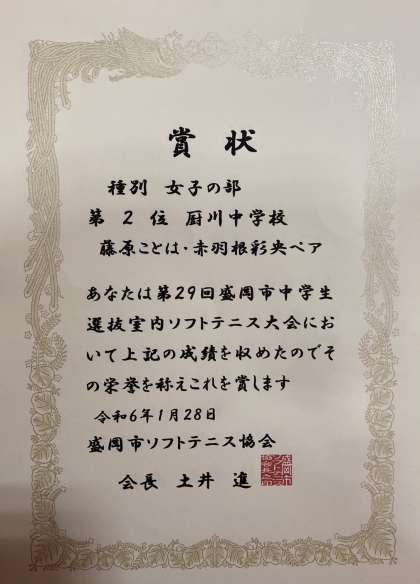 賞状
種別 女子の部
第2位 厨川中学校
藤原ことは・赤羽根彩央ペア
あなたは第29回盛岡市中学生
選抜室内ソフトテニス大会にお
いて上記の成績を収めたのでそ
の栄誉を称えこれを賞します
令和6年1月28日
盛岡市ソフトテニス協会
会長 土井 進